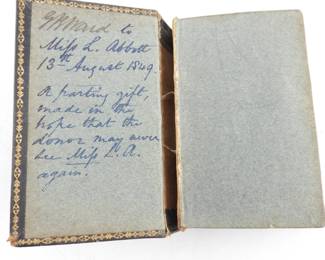 GWWard to
Miss L. Abbott
13th August 1849.
A parting gift,
made in the
hope that the
donor may never
see Miss L. A.
again.